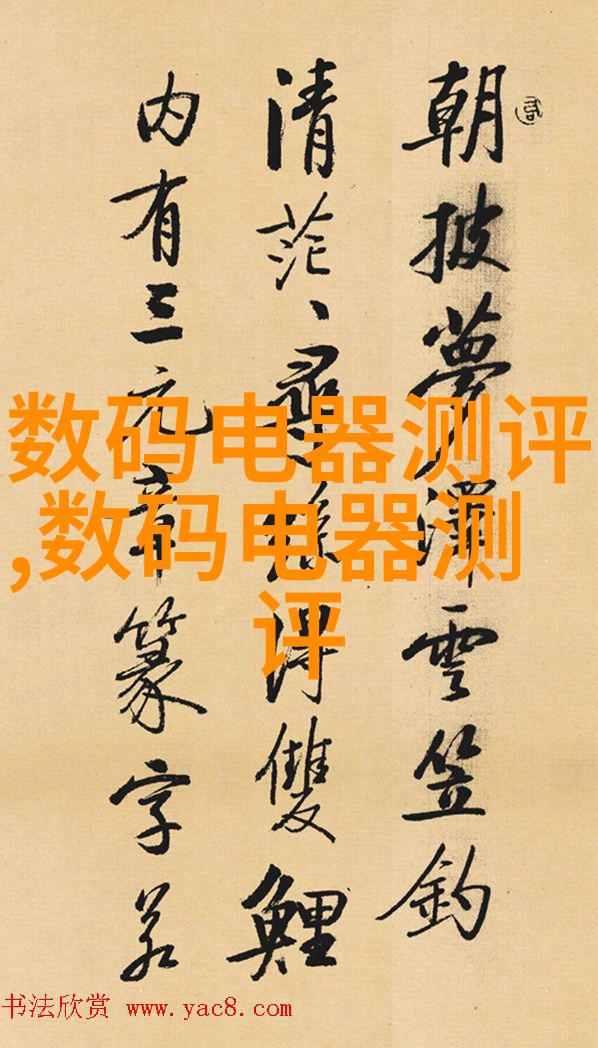 朝披夢澤雲笠釣
清茫、尋絲得雙鯉
内有三元章篆字若
数码电器测评
,数码电器测
评
书法欣赏 www.yac8.com